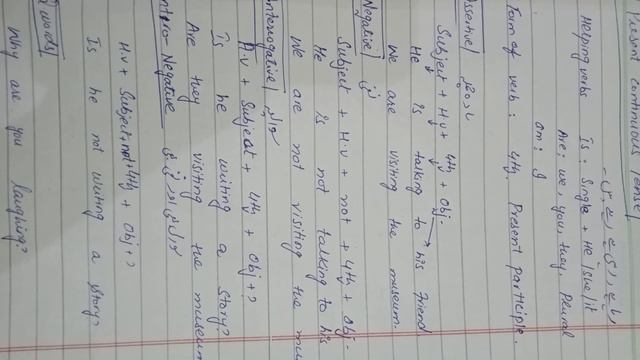 Present Continuous Tense
Helping verbs Is: Single + He/She/it
Are: we, you, they. Plural
am: I
Form of verb: 4th. Present participle.
Assertive/ سادہ
Subject + H.v + 4th + Obj.
He is talking to his friend
We are visiting the museum.
Negative/ نفی
Subject + H.v + not + 4th + Obj.
He is not talking to his
We are not visiting the mu
Interrogative/ سوالیہ
H.v + Subject + 4th + Obj + ?
Is he writing a story?
Are they visiting the museum
Intero-Negative سوالیہ نفی
H.v + Subject + not + 4th + Obj + ?
Is he not writing a story?
words/
Why are you laughing?